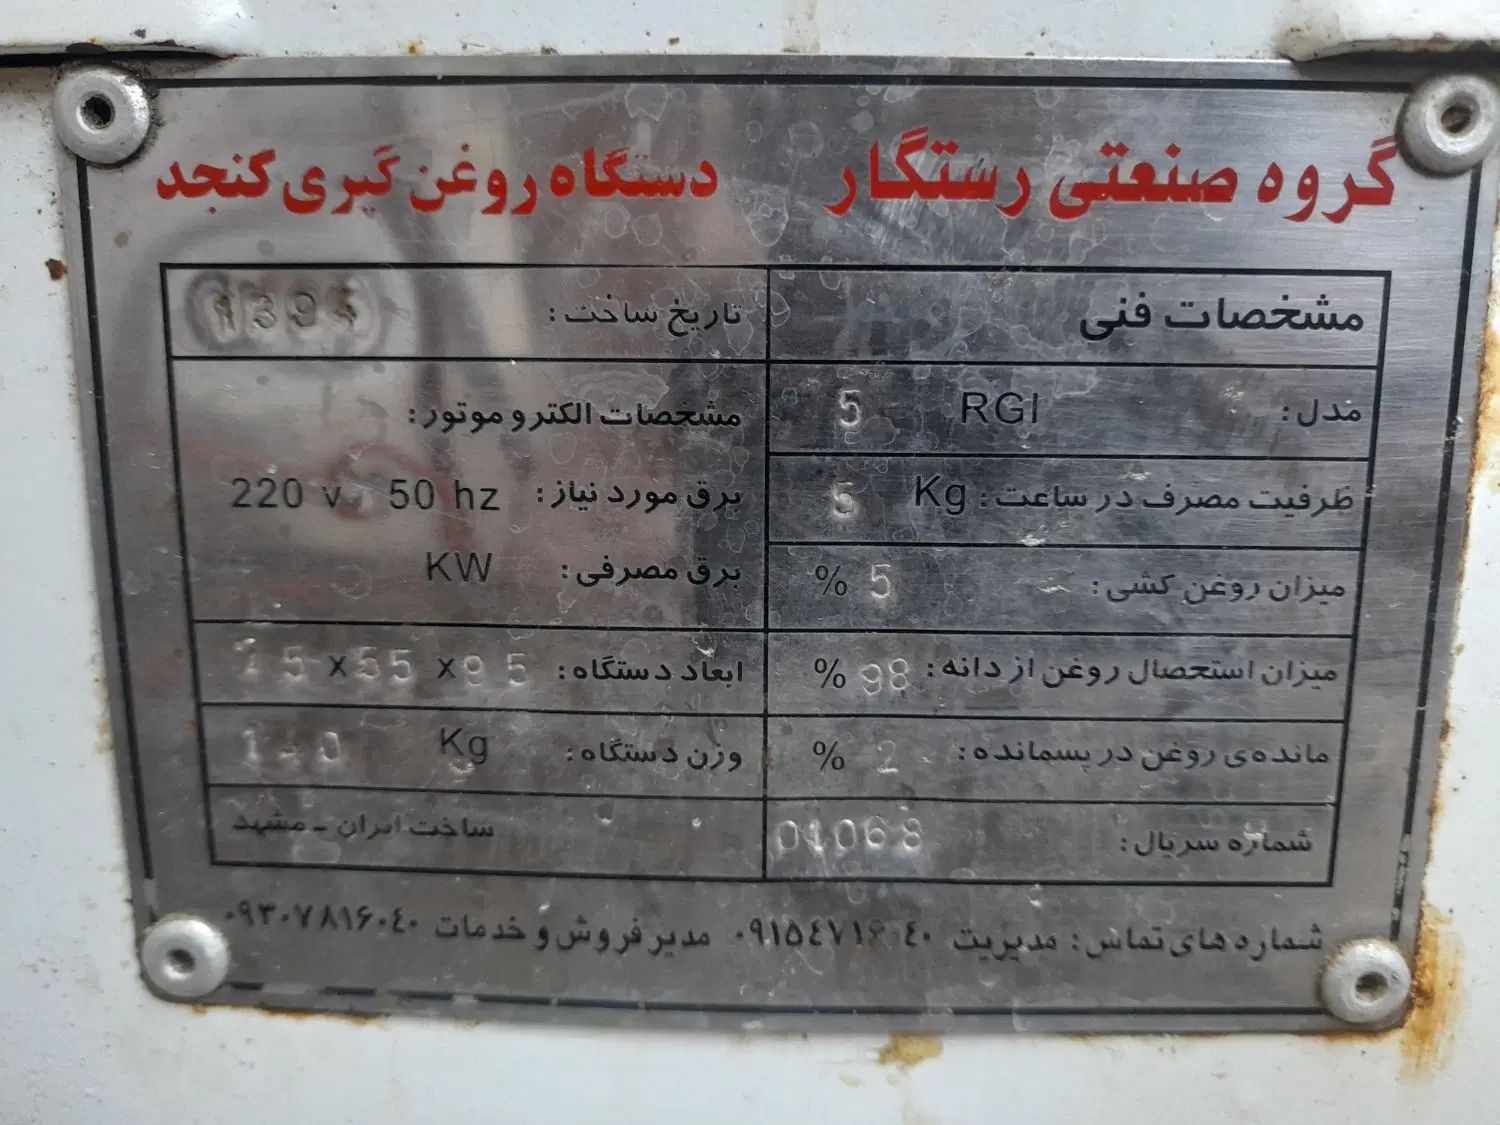 گروه صنعتی رستگار دستگاه روغن گیری کنجد
مشخصات فنی
مدل: RGI 5
ظرفیت مصرف در ساعت: Kg 5
میزان روغن کشی: 5 %
میزان استحصال روغن از دانه: 98 %
مانده‌ی روغن در پسمانده: 2 %
شماره سریال: 01068
تاریخ ساخت:
مشخصات الکترو موتور:
برق مورد نیاز: 220 v 50 hz
برق مصرفی: KW
ابعاد دستگاه: x55 x95
وزن دستگاه: Kg
ساخت ایران - مشهد
شماره های تماس: مدیریت ۰۹۱۵۴۷۱۶۰۴۰ مدیر فروش و خدمات ۰۹۳۰۷۸۱۶۰۴۰